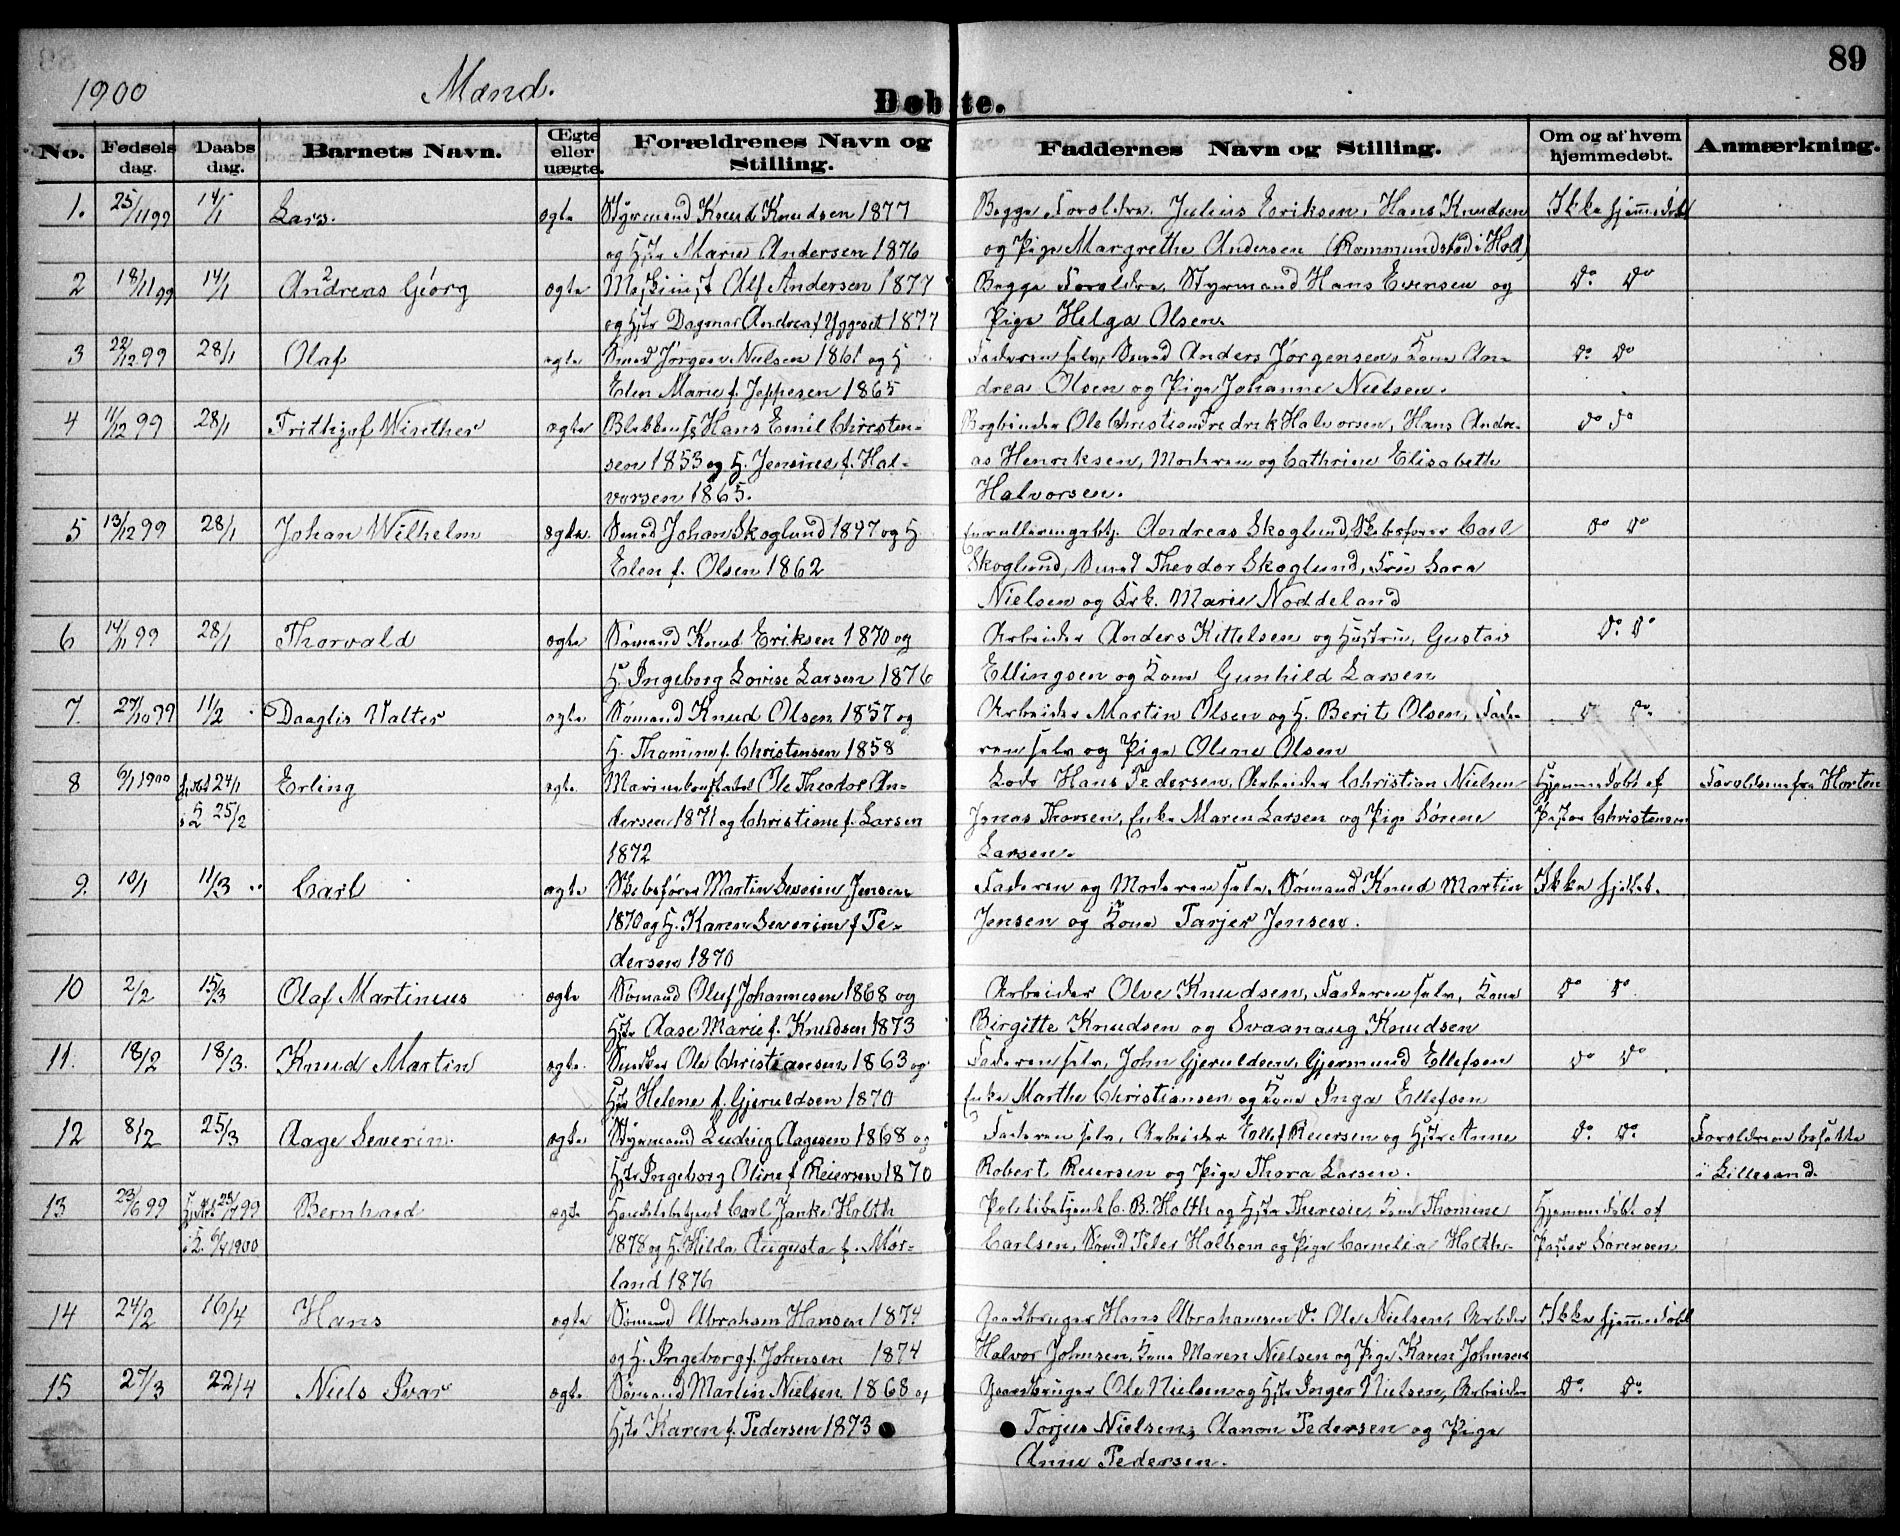 89
1900 Mænd. Døbte.
No. Fødselsdag. Daabsdag. Barnets Navn. Ægte eller uægte. Forældrenes Navn og Stilling. Faddernes Navn og Stilling. Om og af hvem hjemmedøbt. Anmærkning.
1. 25/11 99 14/1 Lars. ægte Styrmand Knud Knudsen 1877 Begge Forældre. Julius Eriksen, Hans Knudsen Ikke hjemmedøbt
og Hstr Marie Andersen 1876 og Pige Margrethe Andersen (Rommundstad i Holt)
2 18/11 99 14/1 Andreas Géorg ægte Maskinist Alf Andersen 1877 Begge Forældre, Styrmand Hans Evensen og Do Do
og Hstr Dagmar Andrea f. Yggeset 1877 Pige Helga Olsen.
3 22/12 99 28/1 Olaf ægte Smed Jørgen Nielsen 1861 og H Faderen selv, Smed Anders Jørgensen, Kone An- Do Do
Elen Marie f. Jeppesen 1865 drea Olsen og Pige Johanne Nielsen.
4 11/12 99 28/1 Frithjof ægte Hans Emil Christen- Bogbinder Ole Christian Fredrik Halvorsen, Hans Andre- Do Do
sen 1853 og H. f. Hal- as Henriksen, Moderen og Cathrine Elisabeth
vorsen 1865. Halvorsen.
5 13/12 99 28/1 Johan Wilhelm ægte Smed Johan Skoglund 1847 og H Andreas Skoglund, Skibsfører Carl Do Do
Elen f. Olsen 1862 Skoglund, Smed Theodor Skoglund, Fru Sara
Nielsen og Frk. Marie Noddeland
6 14/11 99 28/1 Thorvald ægte Sømand Knud Eriksen 1870 og Arbeider Anders Kittelsen og Hustru, Gustav Do Do
H. Ingeborg Lovise Larsen 1876 Ellingsen og Kone Gunhild Larsen
7. 27/10 99 11/2 Daaglis Valter ægte Sømand Knud Olsen 1857 og Arbeider Martin Olsen og H. Berit Olsen, Fade- Do Do
H. Thomine f. Christensen 1858 ren selv og Pige Oline Olsen
8 6/1 1900 hjdøbt 24/1 Erling ægte Marinekonstabel Ole Theodor An- Lods Hans Pedersen, Arbeider Christian Nielsen Hjemmedøbt af Forældrene fra Horten
i K 25/2 dersen 1871 og Christiane f. Larsen Jonas Thorsen, Enke Maren Larsen og Pige Sørene Pastor Christensen
1872 Larsen.
9. 10/1 11/3 Carl ægte Skibsfører Martin Severin Jensen Faderen og Moderen selv, Sømand Knud Martin Ikke hjdbt.
1870 og H. Karen Severine f. Pe- Jensen og Kone Tarjer Jensen.
dersen 1870
10 2/2 15/3 Olaf Martinius ægte Sømand Oluf Johannesen 1868 og Arbeider Olve Knudsen, Faderen selv, Kone Do Do
Hstr Aase Marie f. Knudsen 1873 Birgitte Knudsen og Svaanaug Knudsen
11. 18/2 18/3. Knud Martin ægte Ole Christiansen 1863 og Faderen selv, John Gjeruldsen, Gjermund Ellefsen Do Do
Hstr Helene f. Gjeruldsen 1870 Enke Marthe Christiansen og Kone Inga Ellefsen
12 8/2 25/3 Aage Severin. ægte Styrmand Ludvig Aagesen 1868 og Faderen selv, Arbeider Ellef Reiersen og Hstr Anne Do Do. Forældrene bosatte
Hstr Ingeborg Oline f. Reiersen 1870 Robert Reiersen og Pige Thora Larsen. i Lillesand.
13 23/6 99 99 Bernhard ægte Handelsbetjent Carl Janke Holth Politibetjent C. B. Holth og Hstr Theresie, Kone Thomine Hjemmedøbt af
1900 1878 og H. Hilda Augusta f. Mør- Carlsen, Smed Peter Holbom og Pige Cornelia Holth. Pastor Sørensen
land 1876
14 24/2 16/4 Hans ægte Sømand Abraham Hansen 1874 Gaardbruger Hans Abrahamsen Do Ole Nielsen, Arbeider Ikke hjemmedøbt
og H. Ingeborg f. Johnsen 1874 Halvor Johnsen, Kone Maren Nielsen og Pige Karen Johnsen
15 27/3 22/4 Niels Ivar ægte Sømand Martin Nielsen 1868 og Gaardbruger Ole Nielsen og Hstr Inger Nielsen, Arbeider Do. Do.
Hstr Karen f. Pedersen 1873 Torjus Nielsen, Aanon Pedersen og Pige
Anne Pedersen.